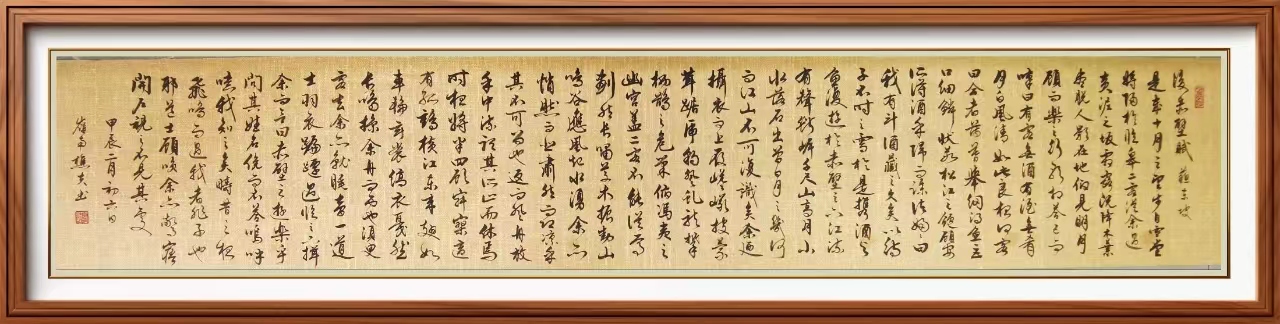 後赤壁賦 蘇東坡
是歲十月之望步自雪堂
將歸於臨皋二客從余過
黃泥之坂霜露既降木葉
盡脫人影在地仰見明月
顧而樂之行歌相答已而
嘆曰有客無酒有酒無肴
月白風清如此良夜何客
曰今者薄暮舉網得魚巨
口細鱗狀如松江之鱸顧安
所得酒乎歸而謀諸婦婦曰
我有斗酒藏之久矣以待
子不時之需於是攜酒與
魚復遊於赤壁之下江流
有聲斷岸千尺山高月小
水落石出曾日月之幾何
而江山不可復識矣余乃
攝衣而上履巉巖披蒙
茸踞虎豹登虬龍攀
栖鶻之危巢俯馮夷之
幽宮蓋二客不能從焉
劃然長嘯草木振動山
鳴谷應風起水湧余亦
悄然而悲肅然而恐凜乎
其不可留也返而登舟放
乎中流聽其所止而休焉
時夜將半四顧寂寥適
有孤鶴橫江東來翅如
車輪玄裳縞衣戛然
長鳴掠余舟而西也須臾
客去余亦就睡夢一道
士羽衣蹁躚過臨之下揖
余而言曰赤壁之遊樂乎
問其姓名俛而不答嗚呼
噫我知之矣疇昔之夜
飛鳴而過我者非子也
耶道士顧笑余亦驚寤
開戶視之不見其處
甲辰二月初六日
樵夫書